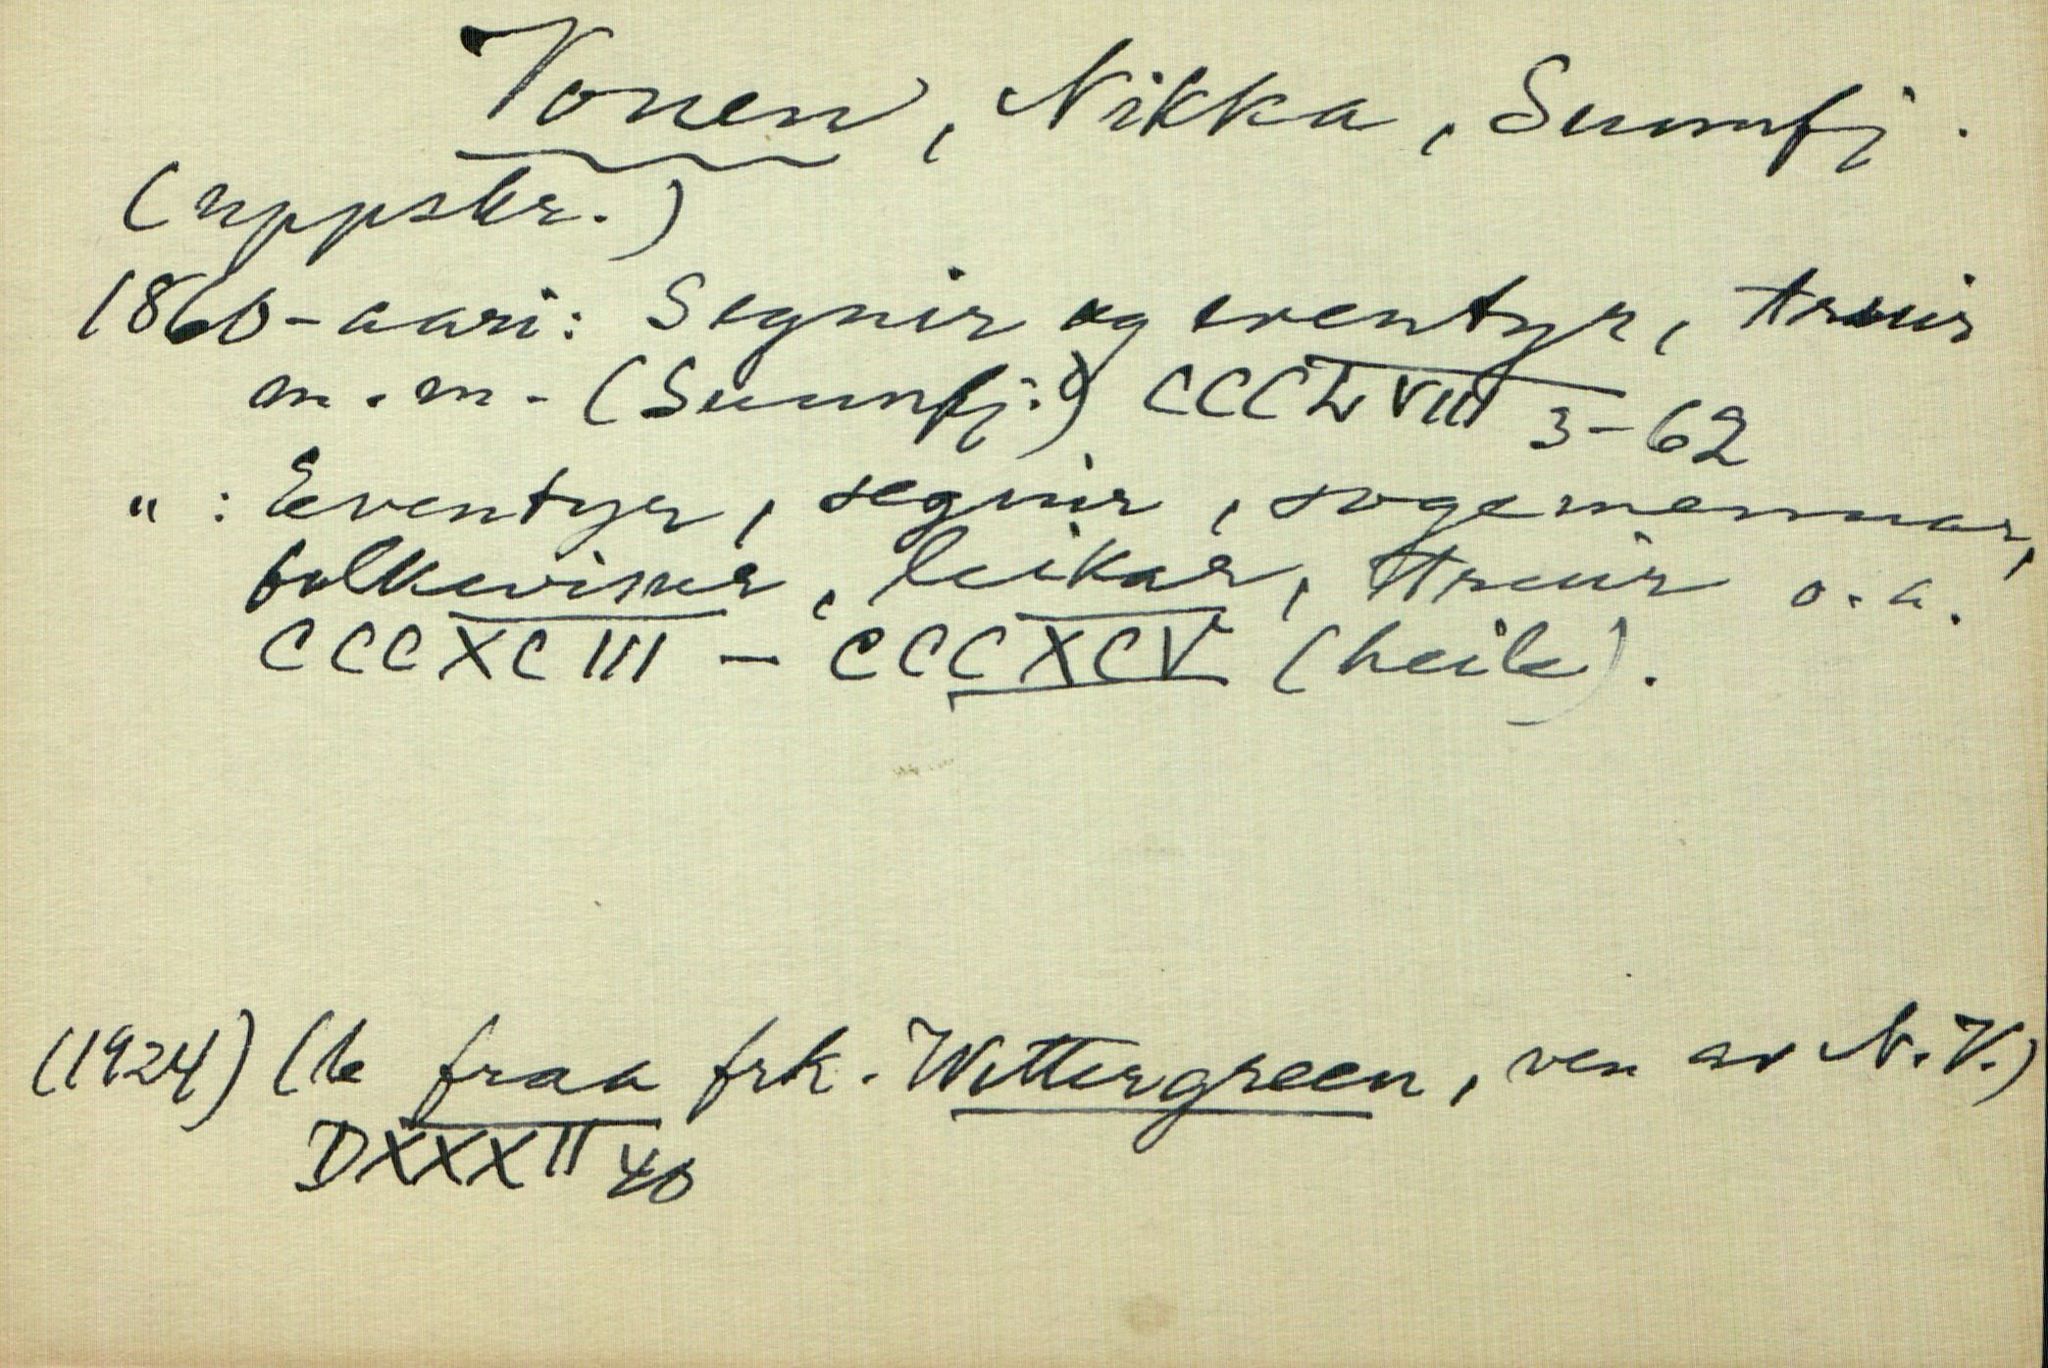 Vonen, Nikka, Sunnfj.
(uppskr.)
1860-aari: Segnir og eventyr, truir
m.m. (Sunnfj.) CCCLVIII 3-62
" : Eventyr, segnir, sogemennar,
folkeviser, leikar, truir o.a.
CCCXCIII - CCCXCV (heile).
(1924) (b fraa frk. Wittergreen, ven av N.V.)
DXXXII 40